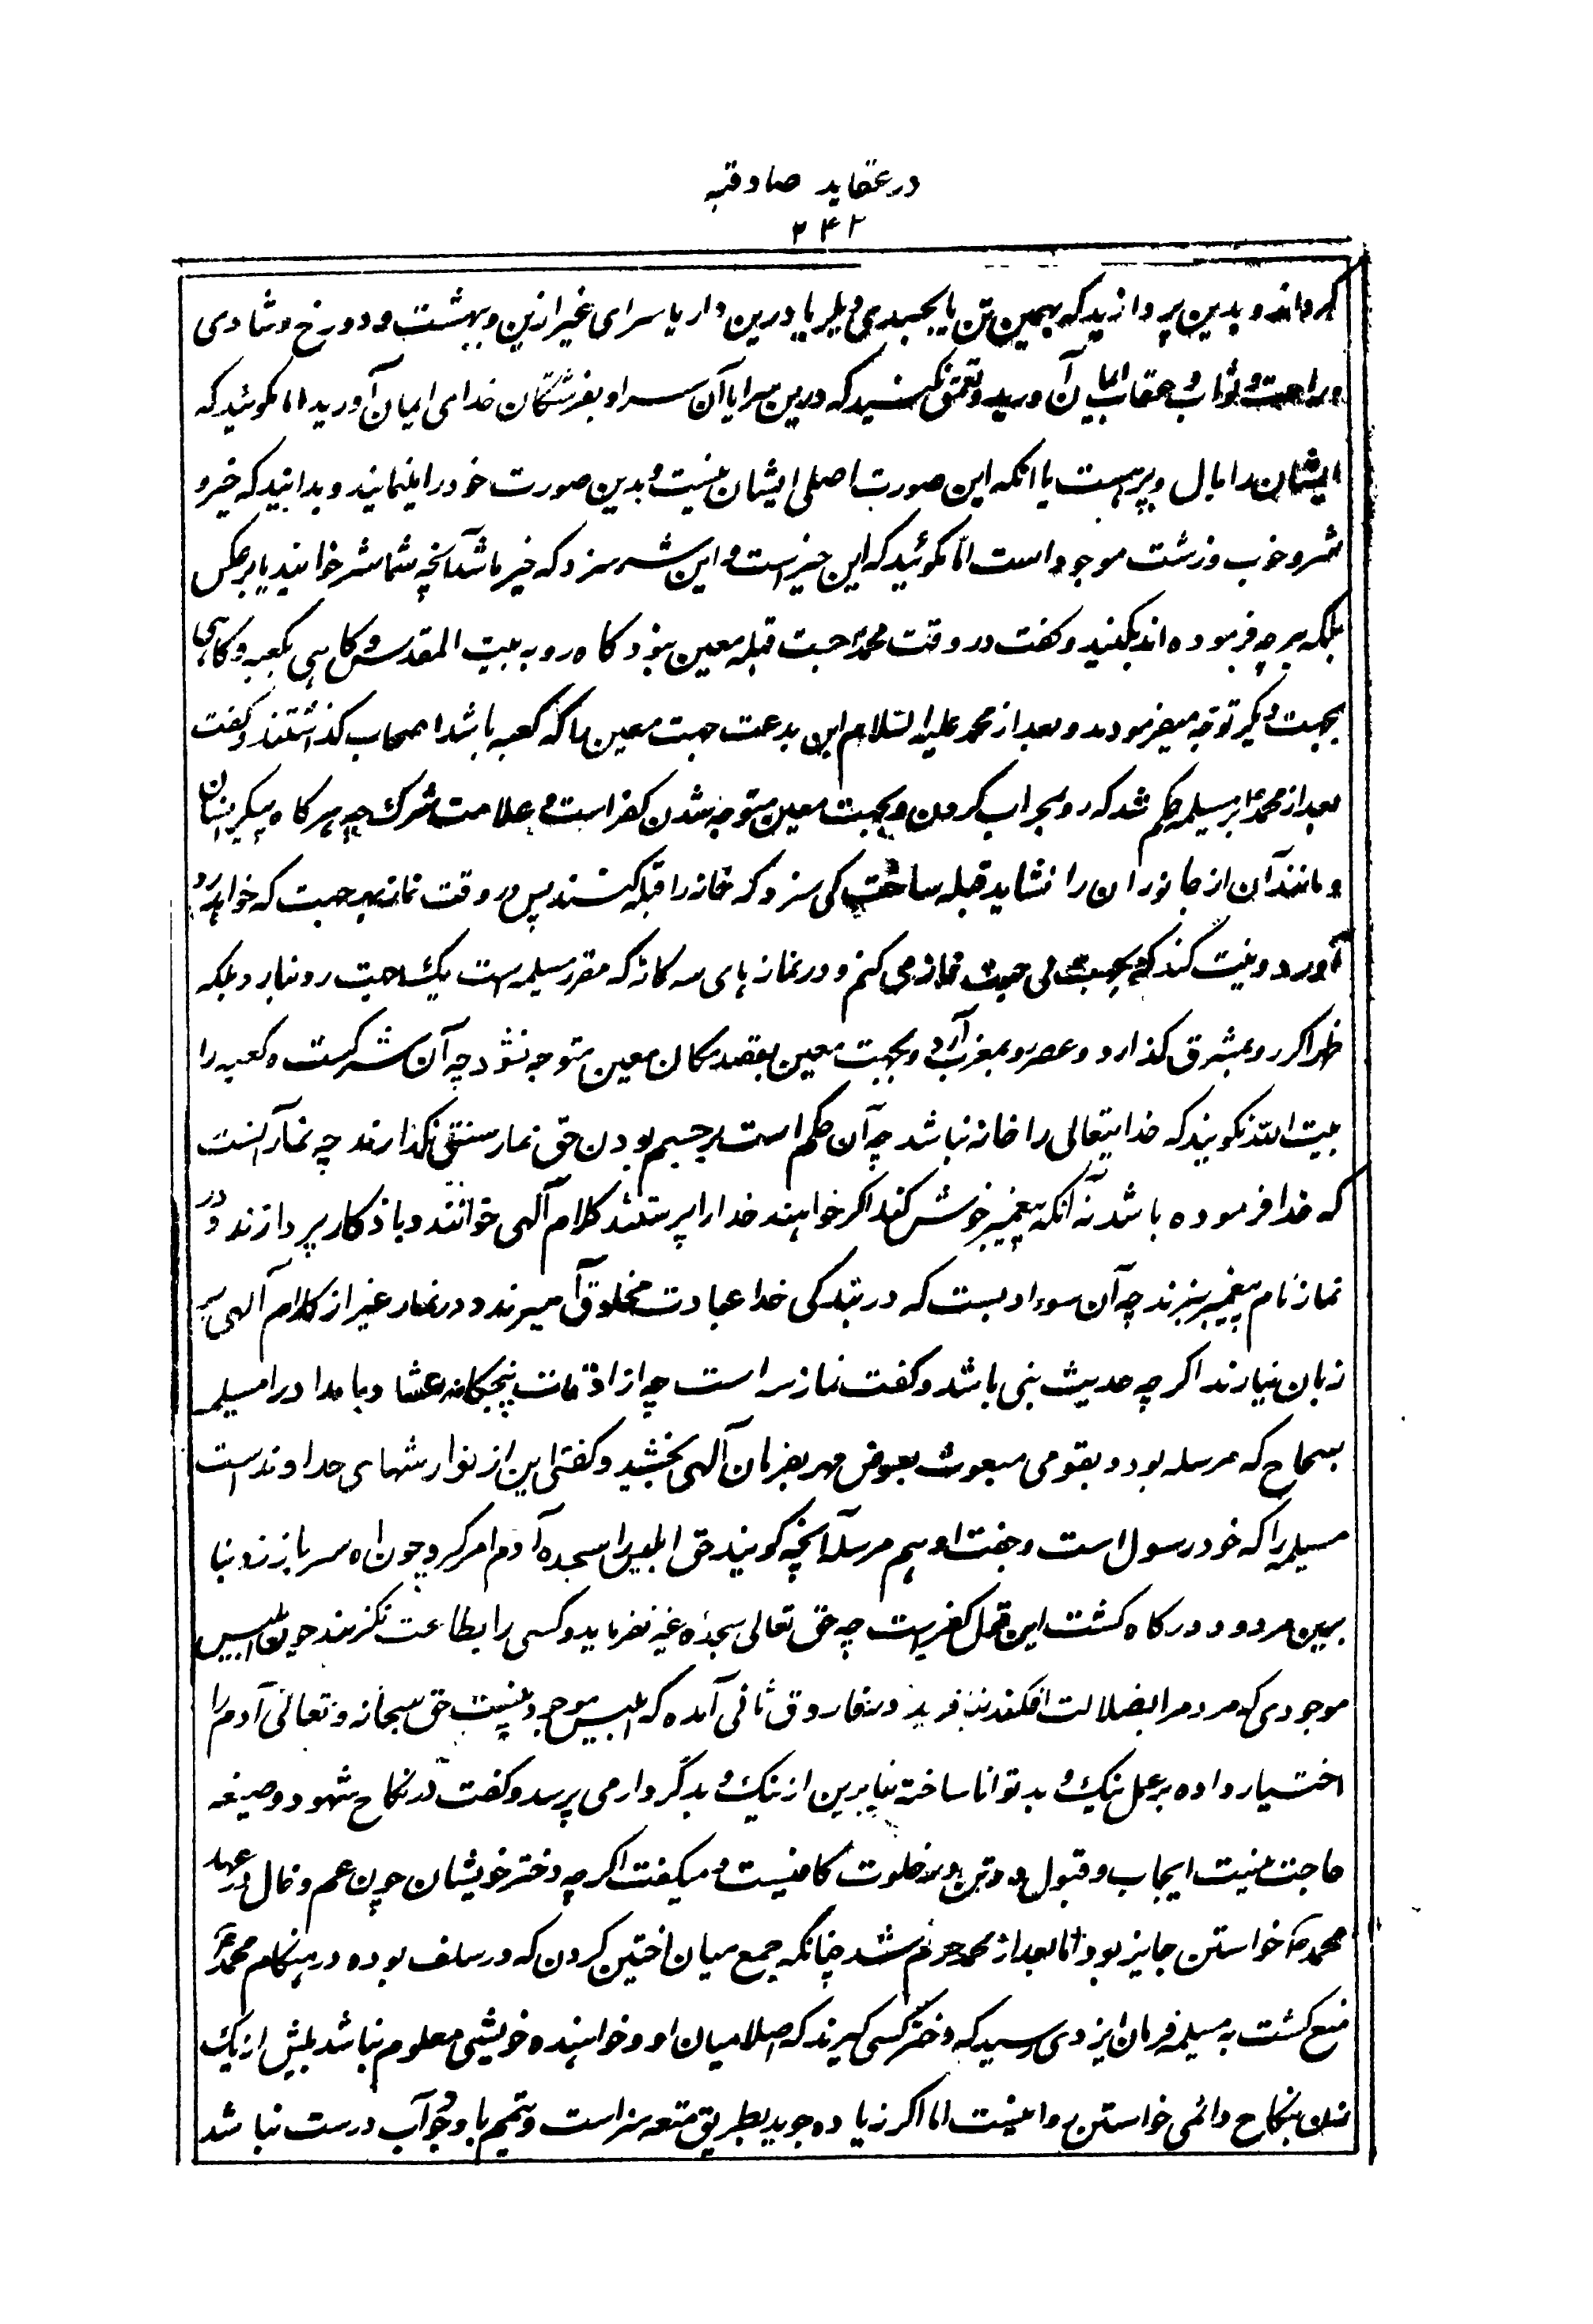 در عقاید صادقیه
۲۴۲
گرداند و بدین پردازید که بهمین تن یا بجسدی دیگر یا درین دار یا سرای غیر ازین و بهشت و دوزخ و شادی
و راحت و ثواب و عقاب ایمان آورید و تعمق نکنید که درین سرا یا آن سرا و بفرشتگان خدای ایمان آورید اما مگوئید که
ایشان را بال و پر هست یا انکه این صورت اصلی ایشان نیست و بدین صورت خود را بنمایند و بدانید که خیر و
شر و خوب و زشت موجود است اما مگوئید که این خیر است و این شر سزد که خیر باشد آنچه شما شر خوانید یا برعکس
بلکه هرچه فرموده اند بکنید و گفت در وقت محمد جهت قبله معین نبود گاه رو به بیت المقدس و گاهی بکعبه و گاهی
بجهت دیگر توجه میفرمودند و بعد از محمد علیه السلام این بدعت جهت معین را که کعبه باشد اصحاب گذاشتند و گفت
بعد از محمد بر مسیلمه حکم شد که رو بمحراب کردن و بجهت معین متوجه شدن کفر است و علامت شرک چه هرگاه پیکر انسان
و مانند آن از جانوران را نشاید قبله ساختن کی سزد که خانه را قبله کنند پس در وقت نماز بهر جهت که خواهد رو
آورد و نیت کند که بجهت بی جهت نماز می کنم و در نماز های سه گانه که مقرر مسیلمه است یک جهت رو نیارد بلکه
ظهر اگر رو بمشرق گذارد و عصر رو بمغرب آرد و بجهت معین بقصد مکان معین متوجه نشود چه آن شرکست و کعبه را
بیت الله نگویند که خدایتعالی را خانه نباشد چه آن حکم است بر جسیم بودن حق نماز سنتی نگذارند چه نماز آنست
که خدا فرموده باشد نه آنکه پیغمبر خوش کند اگر خواهند خدا را پرستند کلام آلهی خوانند و باذکار پردازند و در
نماز نام پیغمبر نبرند چه آن سوء ادبست که در بندگی خدا عبادت مخلوق آمیزند و در نماز غیر از کلام آلهی بر
زبان نیارند اگر چه حدیث نبی باشد و گفت نماز سه است چه از اوقات پنجگانه عشا و بامداد را مسیلمه
بسجاح که مرسله بود و بقومی مبعوث بعوض مهر بفرمان آلهی بخشید و گفتی این از نوازشهای خداوند است
مسیلمه را که خود رسول است و جفت او هم مرسله آنچه گویند حق ابلیس را سجده آدم امر کرد چون اه سر باز زد بنا
برین مردود درگاه گشت این قول کفر است چه حق تعالی سجده غیر نفرماید و کسی را بطاعت نگزیند چون ابلیس
موجودی که مردم را بضلالت افکند نیافرید و در فاروق ثانی آمده که ابلیس موجود نیست حق سبحانه و تعالی آدم را
اختیار داده بر عمل نیک و بد توانا ساخته بنابرین از نیک و بد کردار می پرسد و گفت در نکاح شهود و صیغه
حاجت نیست ایجاب و قبول دو تن در خلوت کافیست و میگفت اگر چه دختر خویشان چون عم و خال در عهد
محمد خواستن جایز بود اما بعد از محمد حرام شد چنانکه جمع میان اختین کردن که در سلف بوده در هنگام محمد
منع گشت به مسیلمه فرمان ایزدی رسید که دختر کسی گیرند که اصلا میان او و خواهنده خویشی معلوم نباشد بیش از یک
زن بنکاح دائمی خواستن روا نیست اما اگر زیاده جوید بطریق متعه سزاست و تیمم با وجود آب درست نباشد